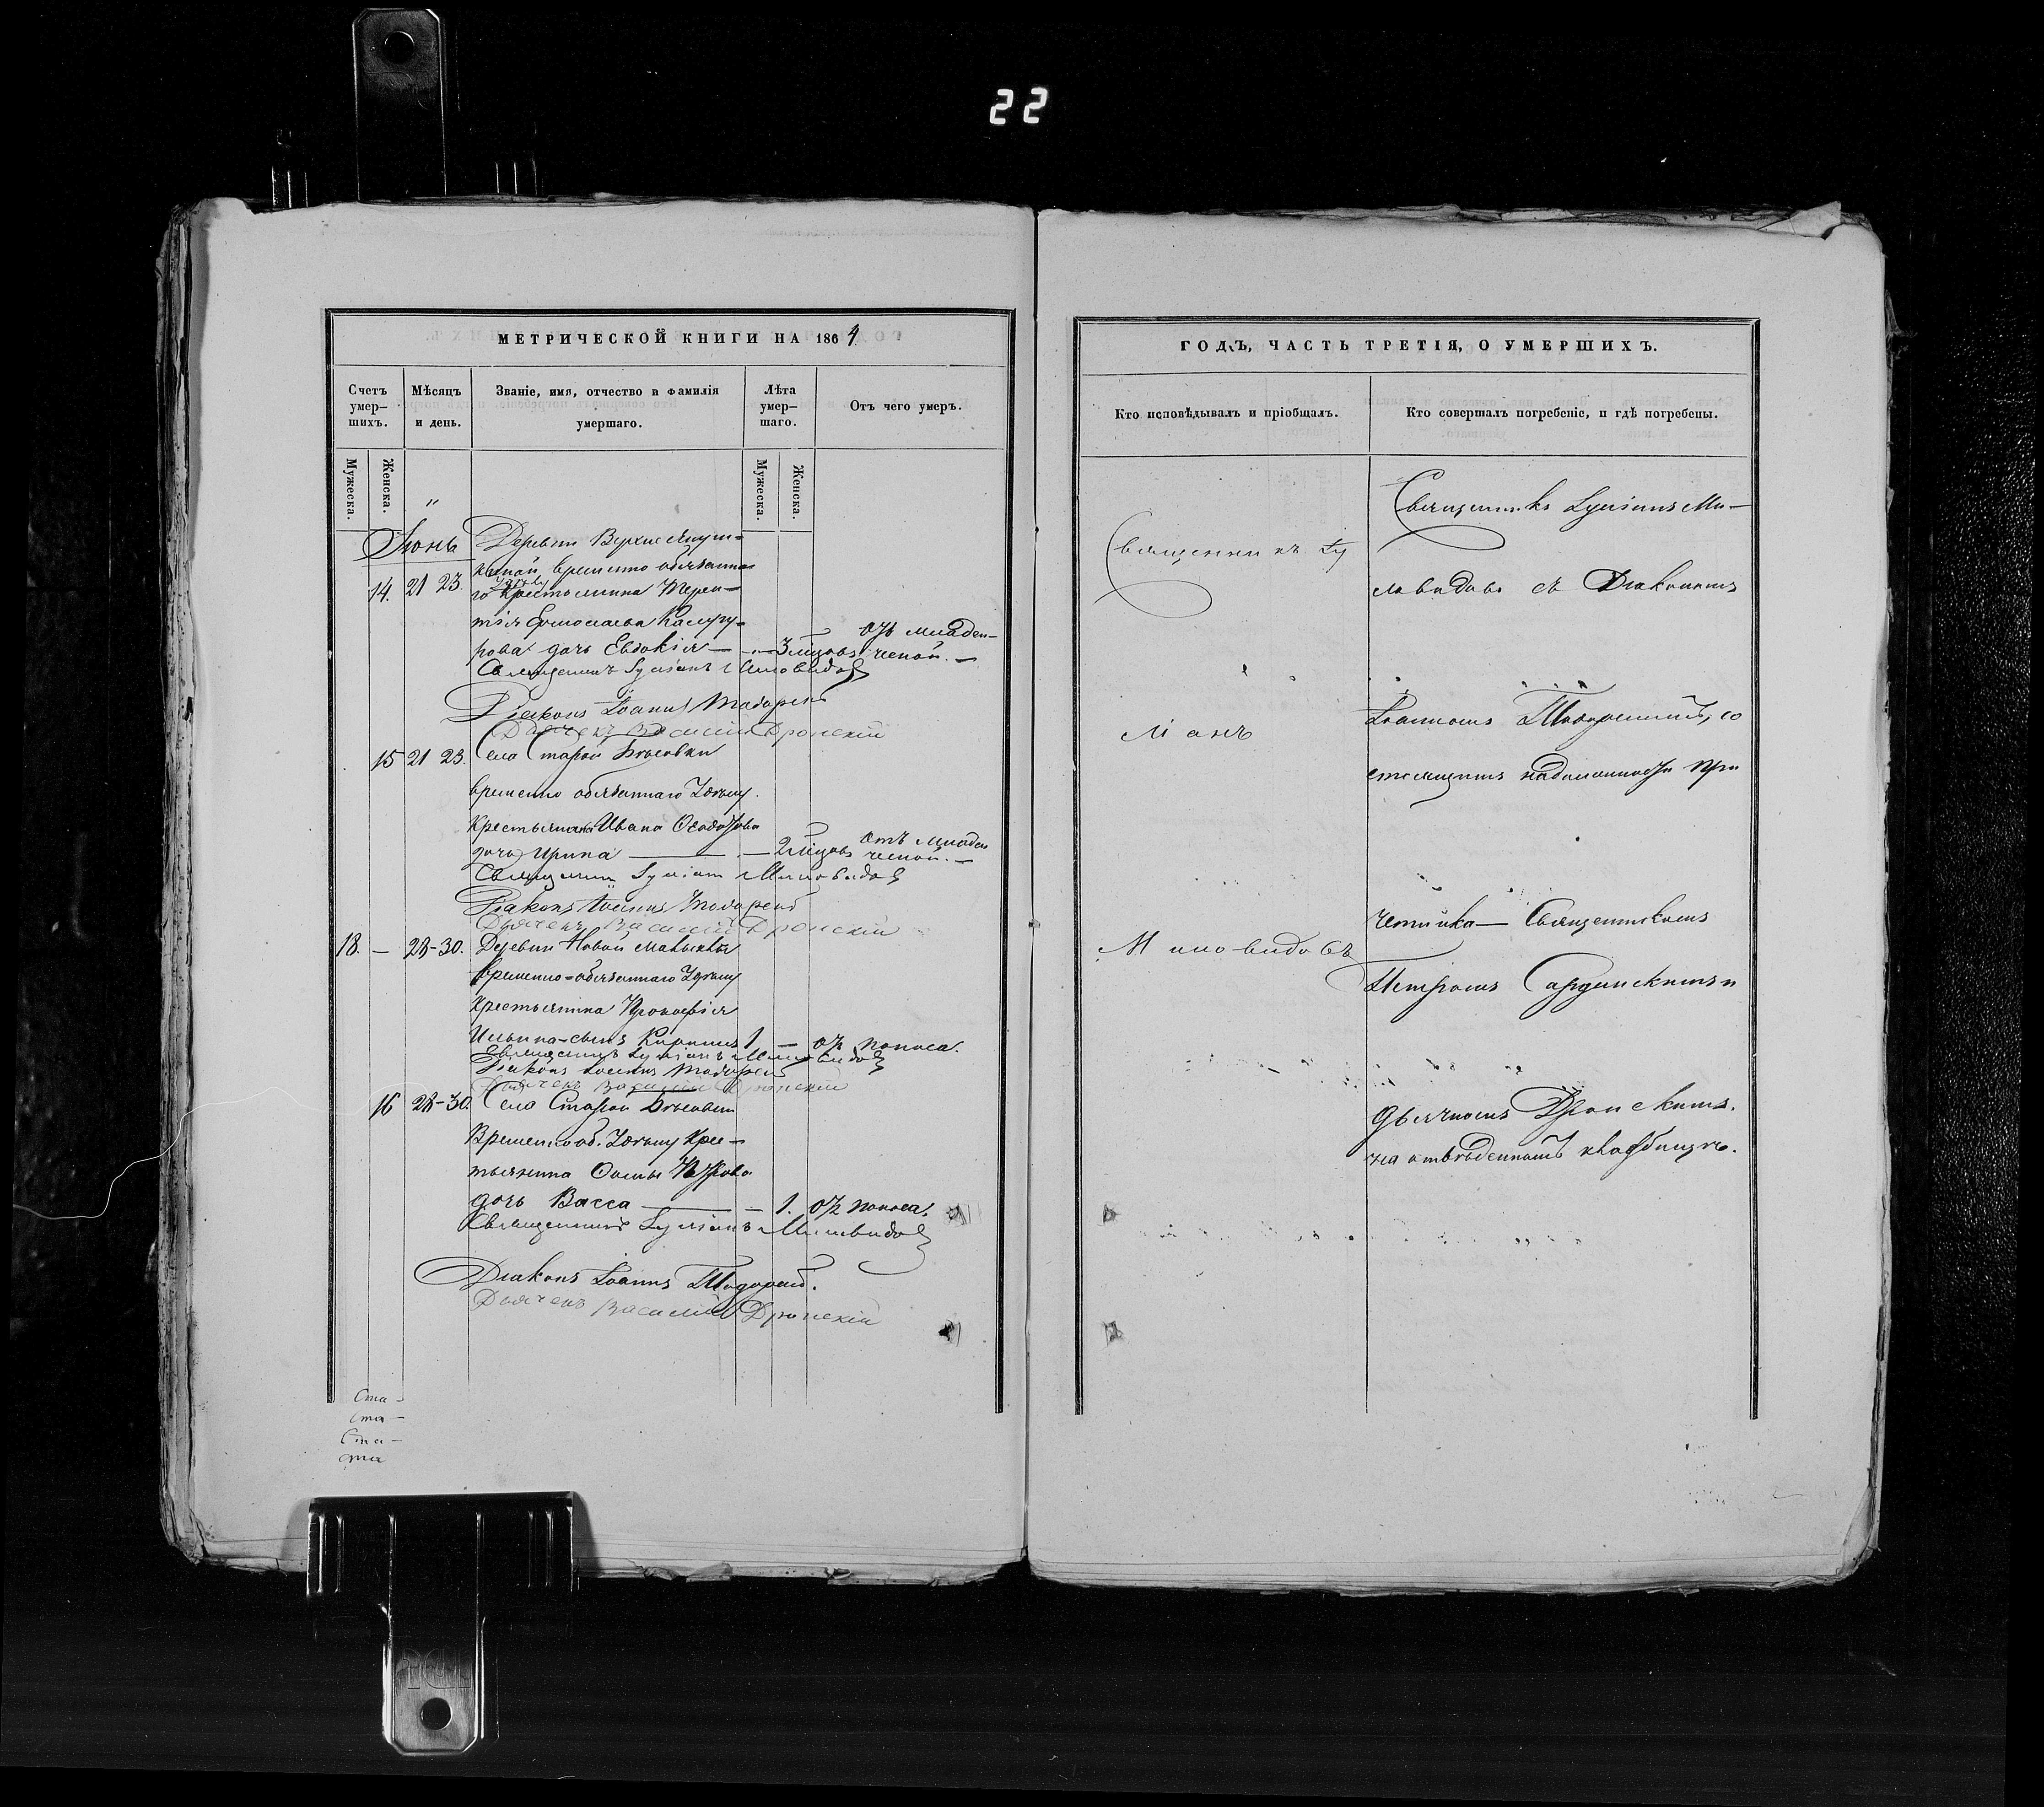 22
МЕТРИЧЕСКОЙ КНИГИ НА 1864
Счетъ умер-шихъ.
Мѣсяцъ и день.
Званіе, имя, отчество и фамилія умершаго.
Лѣта умер-шаго.
Отъ чего умеръ.
Мужеска.
Женска.
Мужеска.
Женска.
Іюнь
Деревни Верхне
временно обязанна
14. 21 23. го Удѣлу Крестьянина Терен-
тія Ермолаева
рова дочь Евдокія — 3 мѣсцовъ отъ младен-
ческой. —
Священникъ Лукіанъ Миловидовъ
Діаконъ Іоаннъ
Дьячекъ Василій Дронскій
15 21 23. Села Старой
временно обязаннаго Удѣлу
крестьянина Ивана Ѳедотова
дочь Ирина — 2 мѣсцовъ отъ младен
ческой. —
Священникъ Лукіанъ Миловидовъ
Діаконъ Іоаннъ
Дьячекъ Василій Дронскій
18. — 28-30. Деревни Новой
временно-обязаннаго Удѣлу
Крестьянина Прокофія
Ильина-сынъ 1 — отъ поноса.
Священникъ Лукіанъ Миловидовъ
Діаконъ Іоаннъ
Дьячекъ Василій Дронскій
16 28-30. Села Старой
Временно об. Удѣлу Крес-
тьянина Ѳомы Петрова
дочь Васса — 1. отъ поноса.
Священникъ Лукіанъ Миловидовъ
Діаконъ Іоаннъ
Дьячекъ Василій Дронскій
Ста-
ста-
Ста-
ста
ГОДЪ, ЧАСТЬ ТРЕТІЯ, О УМЕРШИХЪ.
Кто исповѣдывалъ и пріобщалъ.
Кто совершалъ погребеніе, и гдѣ погребены.
Священникъ Лу
кіанъ
Миловидовъ
Священникъ Лукіанъ Ми-
ловидовъ съ Діакономъ
Іоанномъ со
стоящимъ на должности при
четника — Священникомъ
Петромъ
дьячкомъ Дронскимъ.
на отведенномъ кладбищѣ.